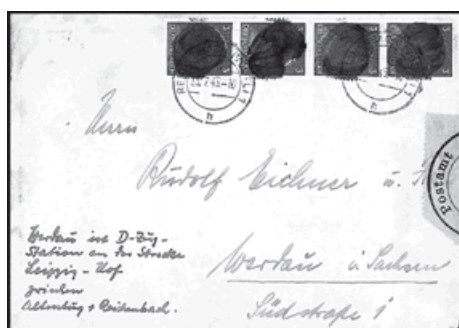 Herrn
Rudolf Eichner u.
Werdau i. Sachsen
Südstraße 1
Werdau ist D-Zug-
Station an der Strecke
Leipzig - Hof
zwischen
Altenburg + Reichenbach.
Postamt